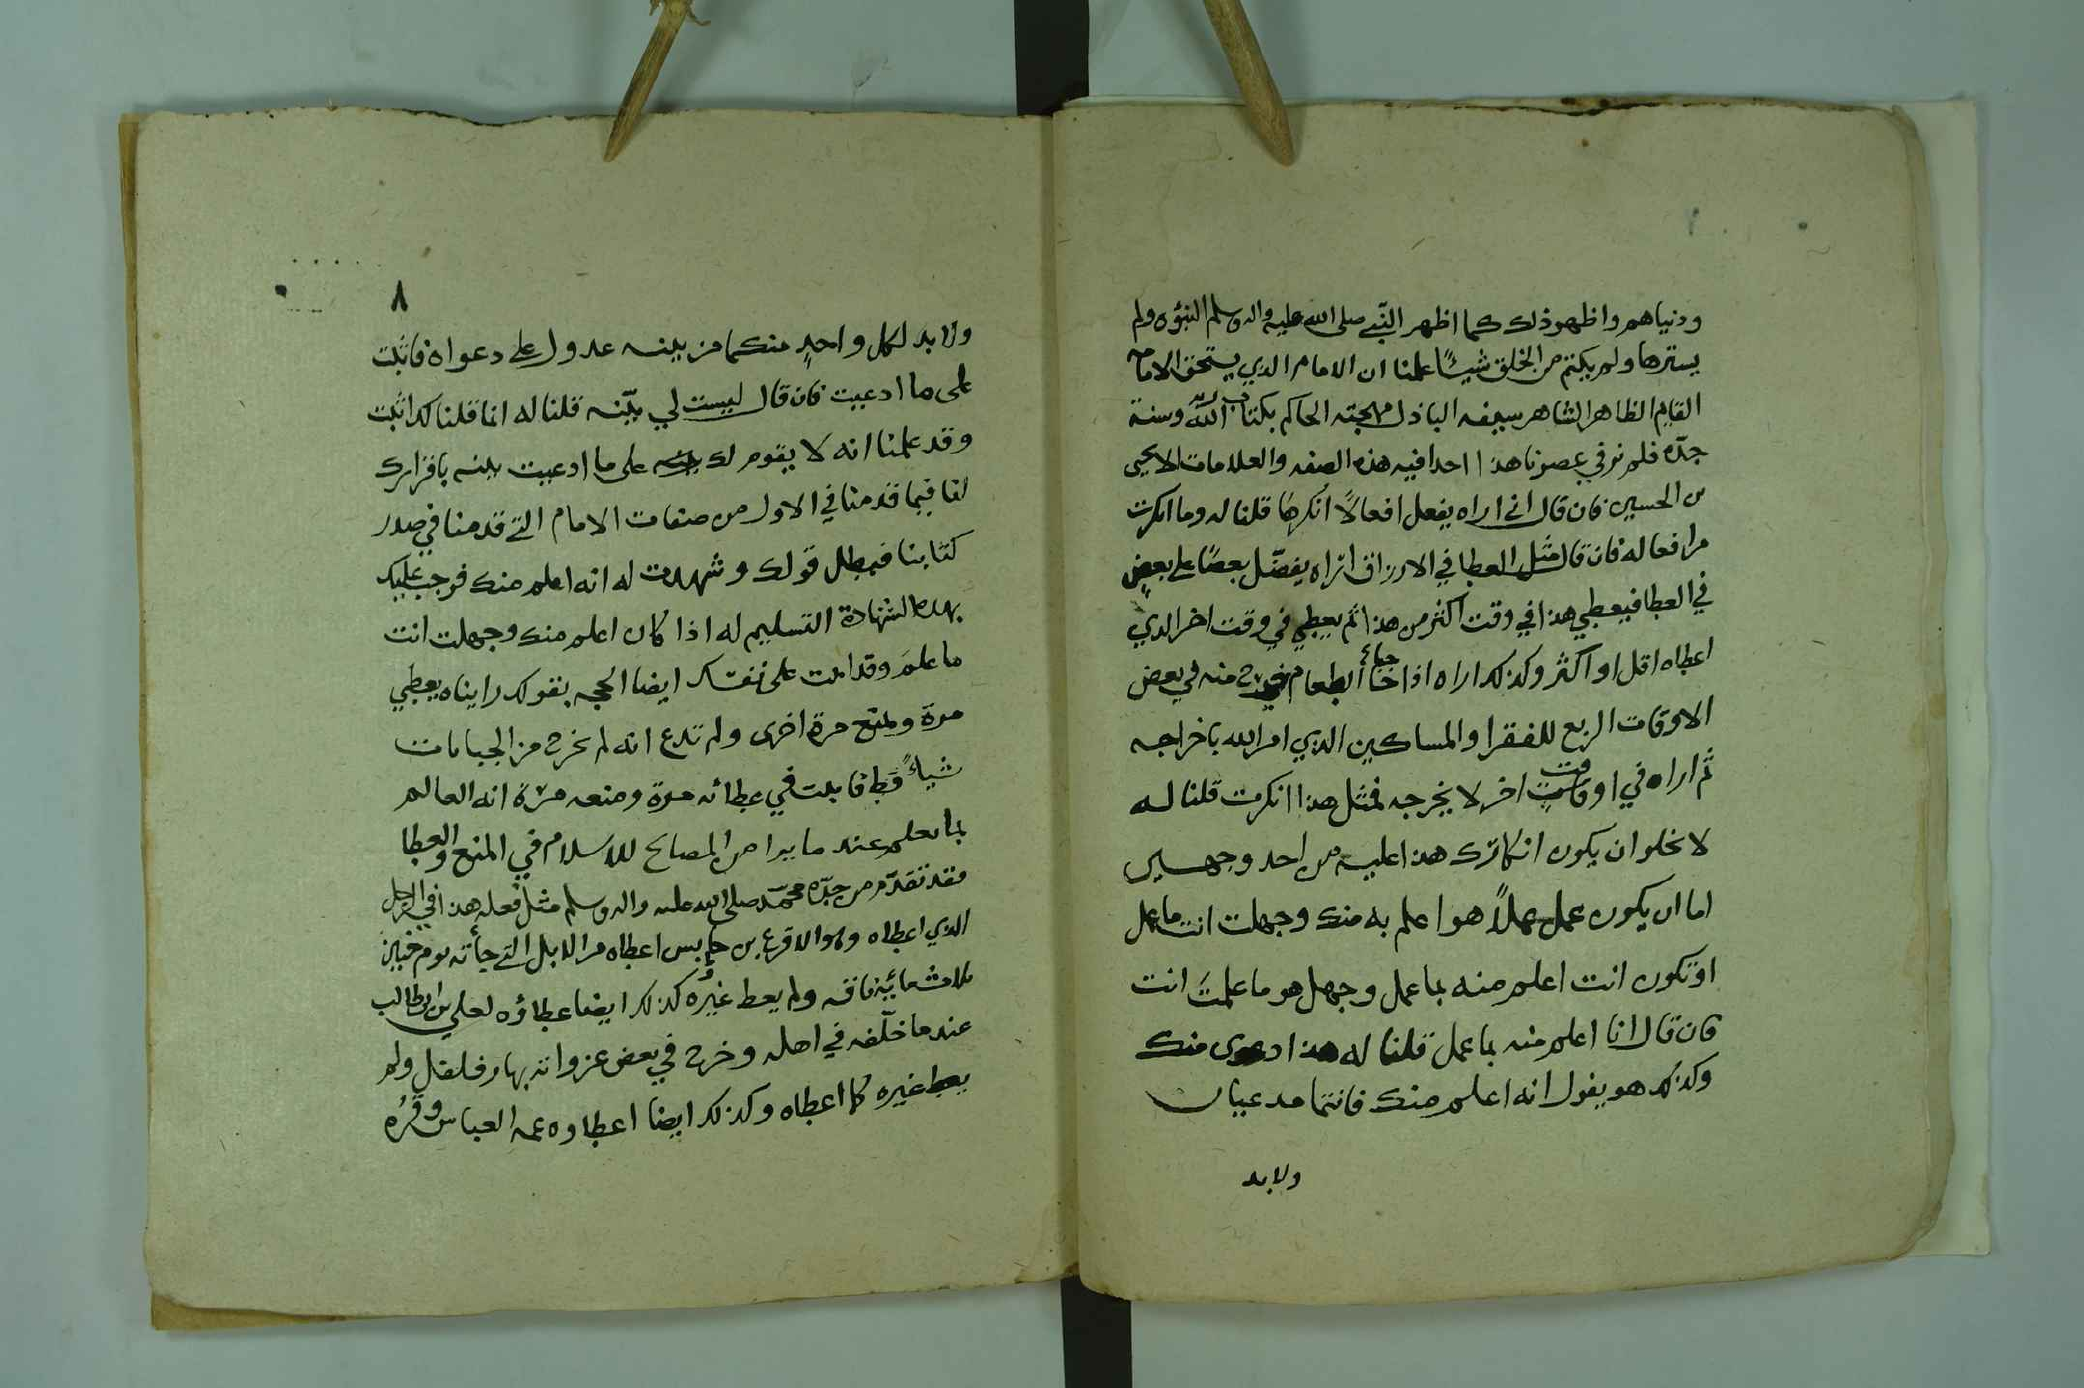 ودنياهم واظهر ذلك كما اظهر النبي صلى الله عليه واله وسلم النبؤه ولم
يسترها ولم يكتم من الخلق شيئًا علمنا ان الامام الذي يستحق الامامه
القايم الظاهر الشاهر سيفه الباذل مهجته الحاكم بكتاب الله وسنة
جدّه فلم نر في عصرنا هذا احدا فيه هذه الصفه والعلامات الا يحيى
بن الحسين فان قال اني اراه يفعل افعالًا انكرها قلنا له وما انكرت
من افعاله فان قال مثل العطا في الارزاق اراه يفضّل بعضًا على بعض
في العطا فيعطي هذا في وقت اكثر من هذا ثم يعطي في وقت اخر الذي
اعطاه اقل او اكثر وكذلك اراه اذا جباء الطعام يخرج منه في بعض
الاوقات الربع للفقرا والمساكين الذي امر الله باخراجه
ثم اراه في اوقات اخر لا يخرجه فمثل هذا انكرت قلنا له
لا يخلو ان يكون انكارك هذا عليه من احد وجهين
اما ان يكون عمل عملًا هو اعلم به منك وجهلت انت ما عمل
او تكون انت اعلم منه بما عمل وجهل هو ما علمت انت
فان قال انا اعلم منه بما عمل قلنا له هذا دعوى منك
وكذلك هو يقول انه اعلم منك فانتما مدعيان
ولابد
٨
ولابد لكل واحدٍ منكما من بينه عدول على دعواه فاثبت
على ما ادعيت فان قال ليست لي بيّنه قلنا له انما قلنا لك اثبت
وقد علمنا انه لا يقوم لك على ما ادعيت بينه باقرارك
لنا فيما قدمنا في الاول من صفات الامام التي قدمنا في صدر
كتابنا فبطل قولك وشهدت له انه اعلم منك فوجب عليك
بهذه الشهادة التسليم له اذا كان اعلم منك وجهلت انت
ما علم وقد اثبت على نفسك ايضا الحجه بقولك رايناه يعطي
مرة ويمنع مرة اخرى ولم تدع انه لم يخرج من الجبايات
شياءً قط فاثبت في عطائه مرة ومنعه مرة انه العالم
بما يعلم عند ما يرا من المصالح للاسلام في المنع والعطا
فقد تقدّم من جدّه محمّد صلى الله عليه واله وسلم مثل فعله هذا في الرجل
الذي اعطاه وهو الاقرع بن حابس اعطاه من الابل التي جأته يوم حنين
ثلاثمائية ناقه ولم يعط غيرُه كذلك ايضا عطاؤه لعلي بن ابي طالب
عندما خلّفه في اهله وخرج في بعض غزواته بها رفلفل ولم
يعط غيره كما اعطاه وكذلك ايضا اعطاوه عمه العباس وقُره